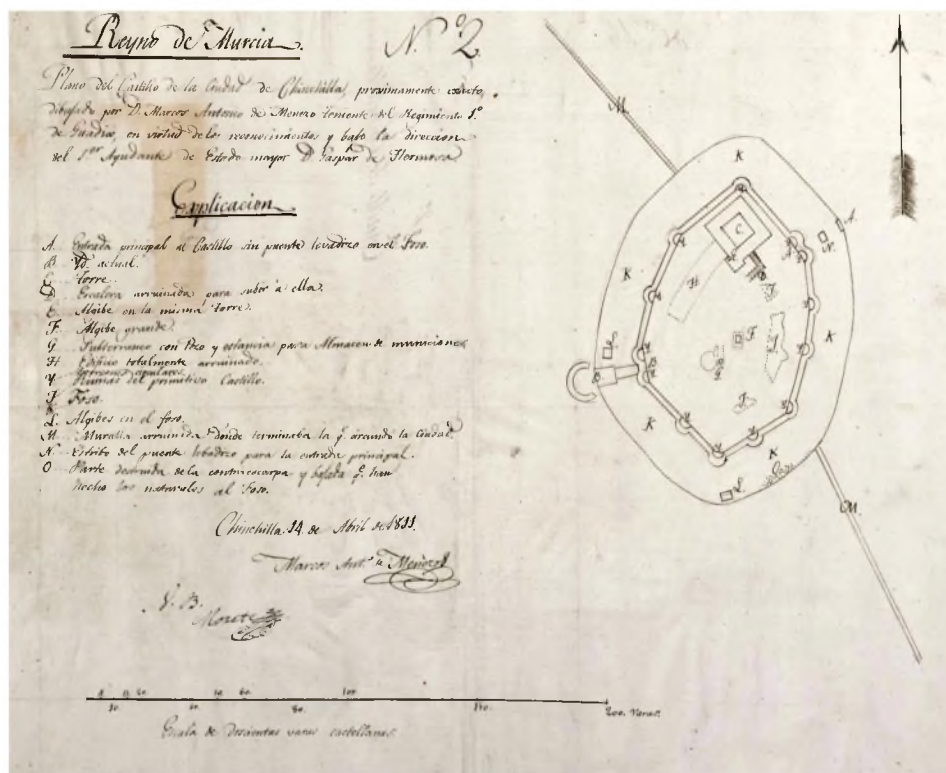 Reyno de Murcia.
N.º 2
Plano del Castillo de la Ciudad de Chinchilla, proximamente exacto,
dibujado por D. Marcos Antonio de Menero teniente del Regimiento 1.º
de Guadix, en virtud de los reconocimientos y bajo la direccion
del 1.er Ayudante de Estado mayor D. Gaspar de Hermosa
Explicacion.
A. Entrada principal al Castillo sin puente levadizo en el Foso.
B. Yd. actual.
C. Torre.
D. Escalera arruinada para subir á ella.
E. Algibe en la misma torre.
F. Algibe grande.
G. Subterraneo con Pozo y estancia para Almacen de municiones
H. Edificio totalmente arruinado.
Y. Ruinas del primitivo Castillo.
Foso.
L. Algibes en el foso.
M. Muralla arruinada donde terminaba la q.e cercando la Ciudad.
N. Estribo del puente lebadizo para la entrada principal.
O. Parte de la contraescarpa y bajada q.e han
hecho los naturales al Foso.
Chinchilla 14 de Abril de 1811.
Marcos Ant.º de Menero
V. B.
M
K
A
N
C
H
K
K
F
L
B
K
K
L
M.
200. Varas.
Escala de doscientas varas castellanas.